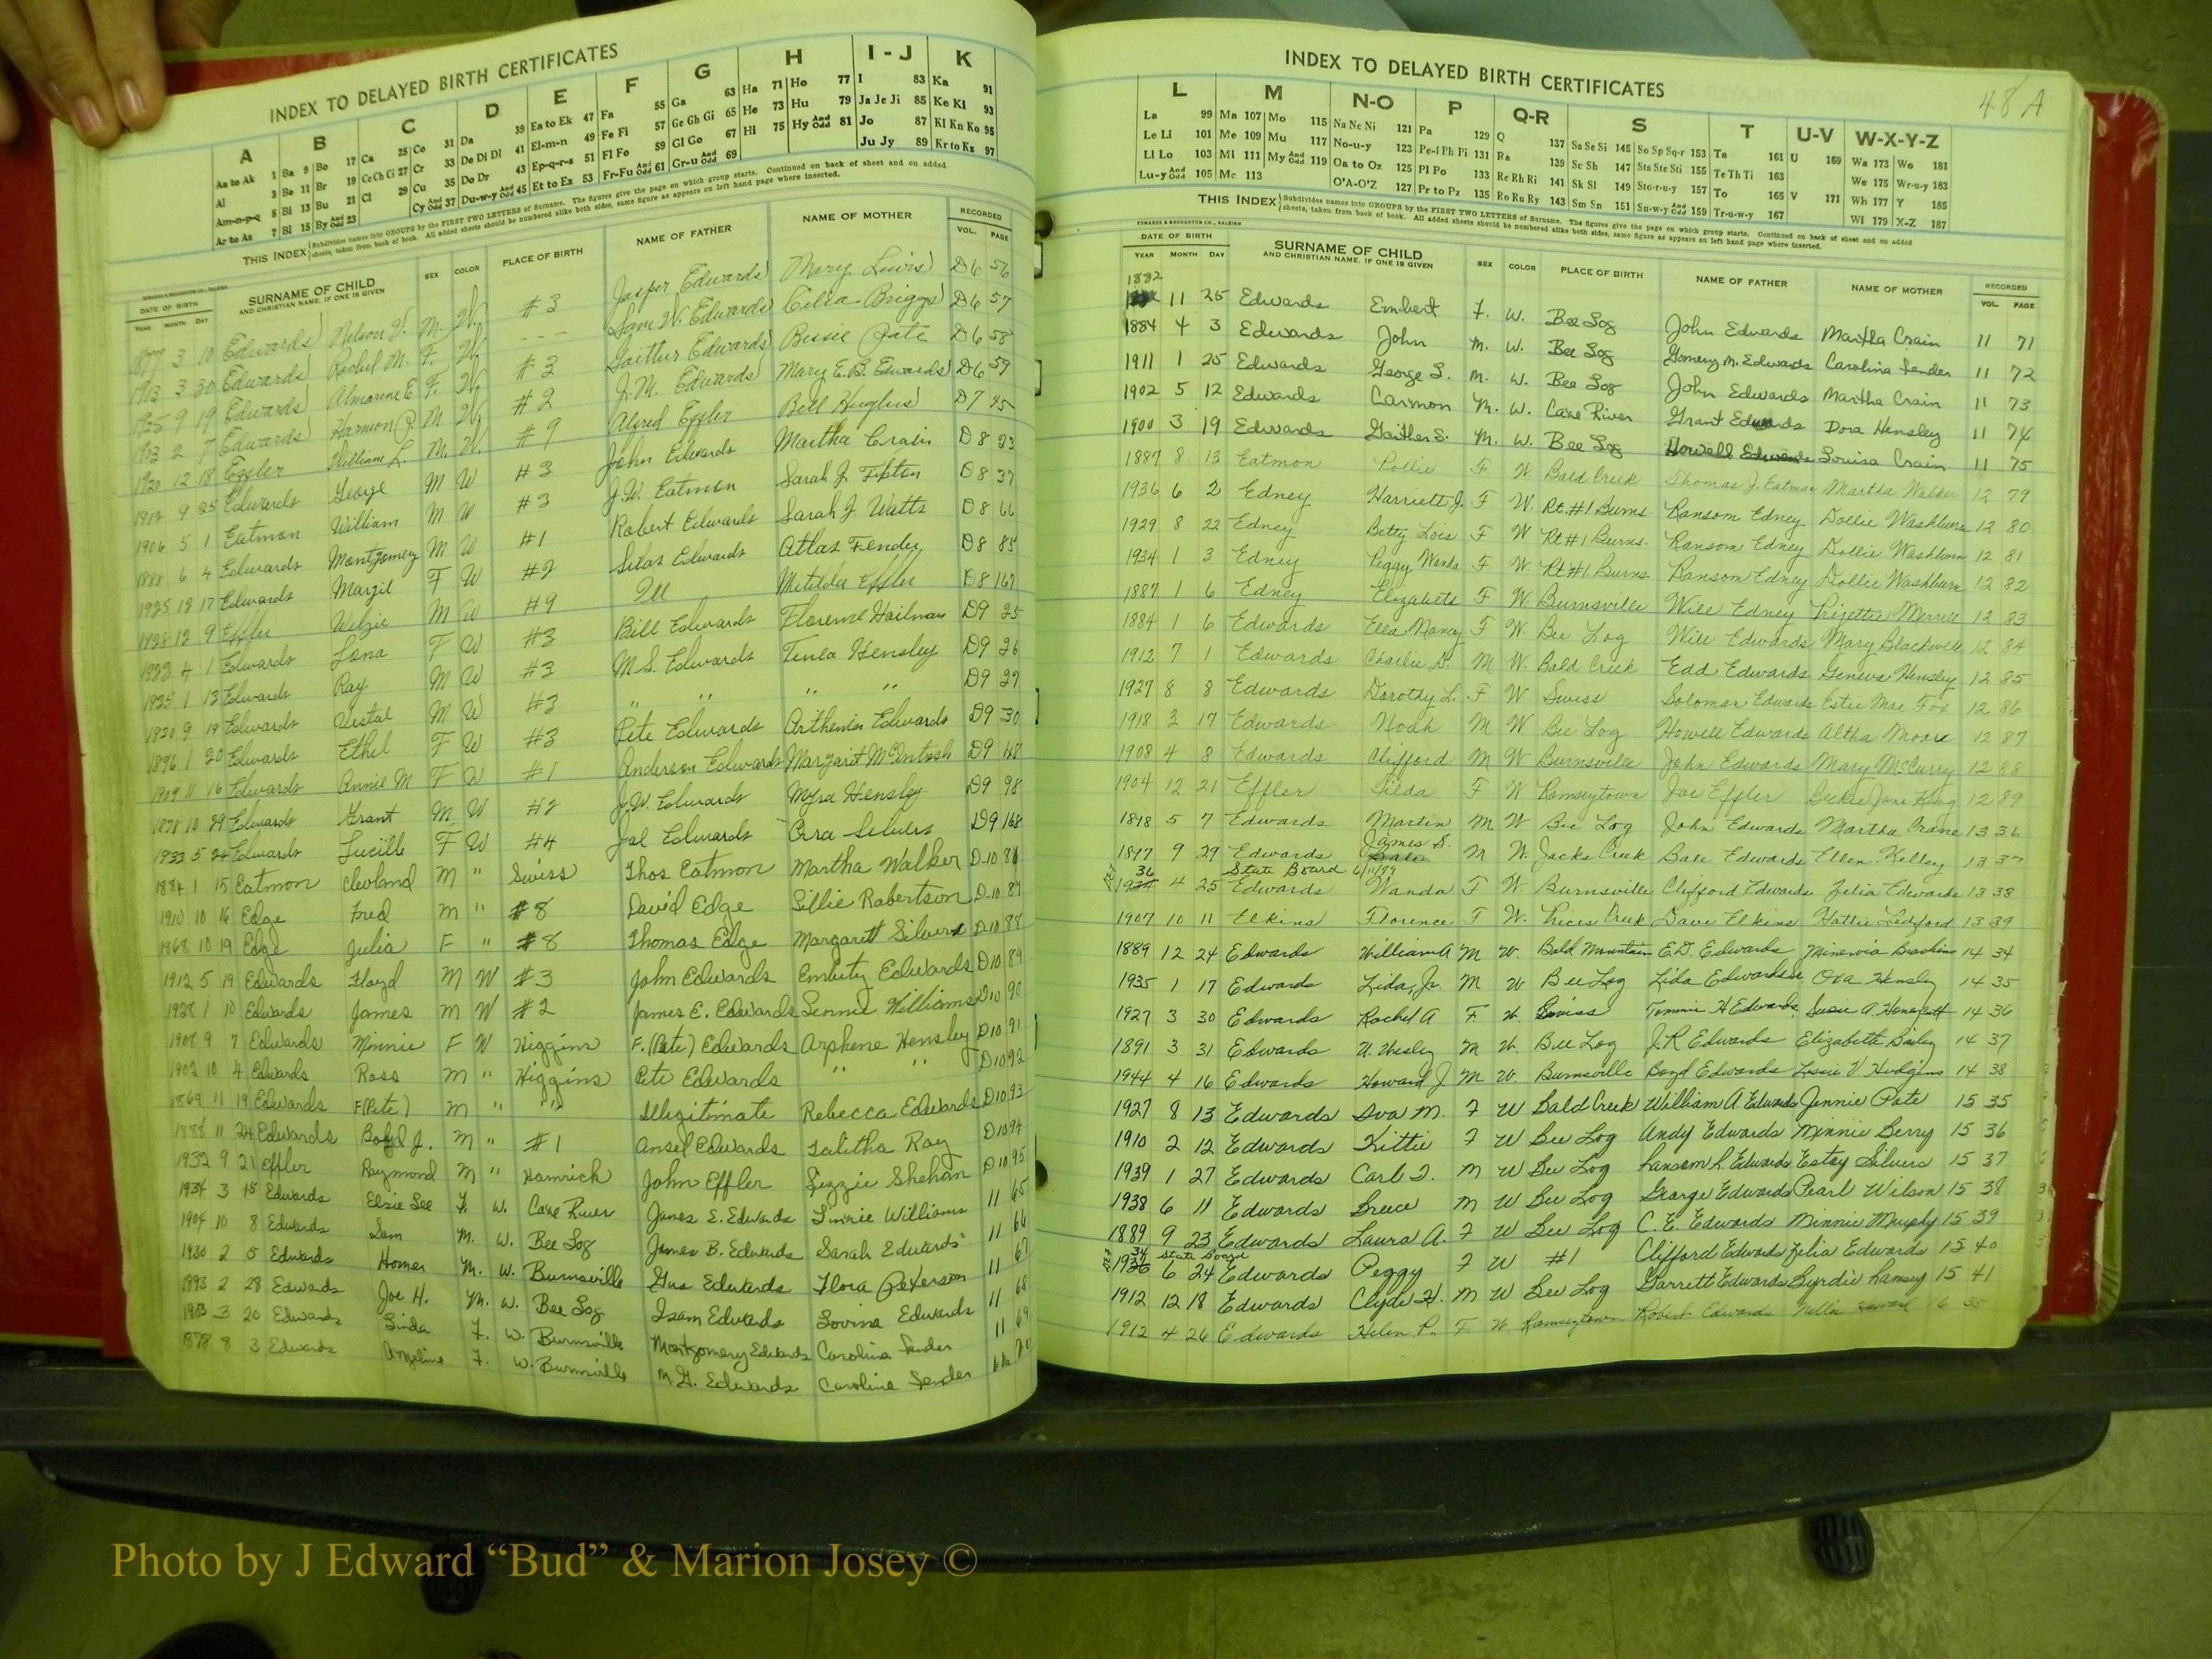 INDEX TO DELAYED BIRTH CERTIFICATES
A B C D E F G H I - J K
Aa to Ak 1 Ba 9 Bo 17 Ca 25 Co 31 Da 39 Ea to Ek 47 Fa 55 Ga 63 Ha 71 Ho 77 I 83 Ka 91
Al 3 Be 11 Br 19 Ce Ch Ci 27 Cr 33 De Di Dl 41 El-m-n 49 Fe Fi 57 Ge Gh Gi 65 He 73 Hu 79 Ja Je Ji 85 Ke Kl 93
Am-n-p-q 5 Bi 13 Bu 21 Cl 29 Cu 35 Do Dr 43 Ep-q-r-s 51 Fl Fo 59 Gl Go 67 Hi 75 Hy And Odd 81 Jo 87 Kl Kn Ko 95
Ar to Az 7 Bl 15 By And Odd 23 Cy And Odd 37 Du-w-y And Odd 45 Et to Ez 53 Fr-Fu And Odd 61 Gr-u And Odd 69 Ju Jy 89 Kr to Kz 97
THIS INDEX Subdivides names into GROUPS by the FIRST TWO LETTERS of Surname. The figures give the page on which group starts. Continued on back of sheet and on added
sheets, taken from back of book. All added sheets should be numbered alike both sides, same figure as appears on left hand page where inserted.
DATE OF BIRTH SURNAME OF CHILD SEX COLOR PLACE OF BIRTH NAME OF FATHER NAME OF MOTHER RECORDED
YEAR MONTH DAY AND CHRISTIAN NAME, IF ONE IS GIVEN VOL. PAGE
1877 3 10 Edwards Nelson W. M. W. #3 Jasper Edwards Mary Lewis D6 56
1913 3 30 Edwards Rachel M. F. W. -- Sam W. Edwards Celia Briggs D6 57
1935 9 19 Edwards Almarene E F. W. #3 Gaither Edwards Bessie Pate D6 58
1903 2 7 Edwards Harmon P. M W. #2 J.M. Edwards Mary E.B. Edwards D6 59
1920 12 18 Effler William L. M. W. #9 Alfred Effler Bell Hughes D7 25
1912 9 25 Edwards George M W #3 John Edwards Martha Crain D8 23
1906 5 1 Eatmon William M W #3 J.W. Eatmon Sarah J Tipton D8 37
1888 6 4 Edwards Montgomery M W #1 Robert Edwards Sarah J Watts D8 66
1925 12 17 Edwards Margie F W #2 Silas Edwards Atlas Fender D8 85
1928 12 9 Effler Welzie M W #9 Ill Matilda Effler D8 167
1922 4 1 Edwards Lona F W #3 Bill Edwards Florence Hailman D9 25
1925 1 13 Edwards Ray M W #3 M.S. Edwards Tinea Hensley D9 26
1920 9 19 Edwards Vestal M W #3 " " " " D9 27
1896 1 20 Edwards Ethel F W #3 Pete Edwards Arthemia Edwards D9 30
1909 11 16 Edwards Annie M F W #1 Anderson Edwards Margaret McIntosh D9 48
1878 10 29 Edwards Grant M W #2 J.W. Edwards Myra Hensley D9 98
1933 5 24 Edwards Lucille F W #4 Joe Edwards Ora Silvers D9 168
1884 1 15 Eatmon Cleveland M " Swiss Thos Eatmon Martha Walker D-10 86
1910 10 16 Edge Fred M " #8 David Edge Lillie Robertson D-10 87
1868 10 19 Edge Julia F " #8 Thomas Edge Margarett Silvers D-10 88
1912 5 19 Edwards Floyd M W #3 John Edwards Emluty Edwards D10 89
1928 1 10 Edwards James M W #2 James E. Edwards Lennie Williams D10 90
1908 9 7 Edwards Minnie F W Higgins F. (Pete) Edwards Arphene Hensley D10 91
1902 10 4 Edwards Ross M " Higgins Pete Edwards " " D10 92
1869 11 19 Edwards F(Pete) M " " Illegitimate Rebecca Edwards D10 93
1888 11 24 Edwards Boyd J. M " #1 Ansel Edwards Talitha Ray D10 94
1932 9 21 Effler Raymond M " Hamrick John Effler Lizzie Shehan D10 95
1934 3 15 Edwards Elsie Lee F. W. Cane River James E. Edwards Linnie Williams 11 65
1904 10 8 Edwards Sam M. W. Bee Log James B. Edwards Sarah Edwards 11 66
1930 2 5 Edwards Homer M. W. Burnsville Gus Edwards Flora Peterson 11 67
1893 2 28 Edwards Joe H. M. W. Bee Log Isam Edwards Lovina Edwards 11 68
1903 3 20 Edwards Linda F. W. Burnsville Montgomery Edwards Carolina Fender 11 69
1878 8 3 Edwards Angeline F. W. Burnsville M G. Edwards Caroline Fender 11 70
INDEX TO DELAYED BIRTH CERTIFICATES 48 A
L M N-O P Q-R S T U-V W-X-Y-Z
La 99 Ma 107 Mo 115 Na Ne Ni 121 Pa 129 Q 137 Sa Se Si 145 So Sp Sq-r 153 Ta 161 U 169 Wa 173 Wo 181
Le Li 101 Me 109 Mu 117 No-u-y 123 Pe-f Ph Pi 131 Ra 139 Sc Sh 147 Sta Ste Sti 155 Te Th Ti 163 We 175 Wr-u-y 183
Ll Lo 103 Mi 111 My And Odd 119 Oa to Oz 125 Pl Po 133 Re Rh Ri 141 Sk Sl 149 Sto-r-u-y 157 To 165 V 171 Wh 177 Y 185
Lu-y And Odd 105 Mc 113 O'A-O'Z 127 Pr to Pz 135 Ro Ru Ry 143 Sm Sn 151 Su-w-y And Odd 159 Tr-u-w-y 167 Wi 179 X-Z 187
THIS INDEX Subdivides names into GROUPS by the FIRST TWO LETTERS of Surname. The figures give the page on which group starts. Continued on back of sheet and on added
sheets, taken from back of book. All added sheets should be numbered alike both sides, same figure as appears on left hand page where inserted.
EDWARDS & BROUGHTON CO., RALEIGH
DATE OF BIRTH SURNAME OF CHILD SEX COLOR PLACE OF BIRTH NAME OF FATHER NAME OF MOTHER RECORDED
YEAR MONTH DAY AND CHRISTIAN NAME, IF ONE IS GIVEN VOL. PAGE
1882
11 25 Edwards Embert F. W. Bee Log John Edwards Martha Crain 11 71
1884 4 3 Edwards John M. W. Bee Log Gomery M. Edwards Carolina Fender 11 72
1911 1 25 Edwards George S. M. W. Bee Log John Edwards Martha Crain 11 73
1902 5 12 Edwards Carmon M. W. Cane River Grant Edwards Dora Hensley 11 74
1900 3 19 Edwards Gaither S. M. W. Bee Log Howell Edwards Louisa Crain 11 75
1887 8 13 Eatmon Pollie F W. Bald Creek Thomas J. Eatman Martha Walker 12 79
1936 6 2 Edney Harriett J. F W. Rt. #1 Burns. Ransom Edney Dollie Washburn 12 80
1929 8 22 Edney Betty Lois F W Rt #1 Burns. Ransom Edney Dollie Washburn 12 81
1934 1 3 Edney Peggy Wanda F W. Rt #1 Burns Ransom Edney Dollie Washburn 12 82
1887 1 6 Edney Elizabeth F W. Burnsville Will Edney Lizettie Merrell 12 83
1884 1 6 Edwards Ella Nancy F W. Bee Log Will Edwards Mary Blackwell 12 84
1912 7 1 Edwards Charlie D. M W. Bald Creek Edd Edwards Geneva Hensley 12 85
1927 8 8 Edwards Dorothy L. F W Swiss Solomon Edwards Estie Mae Fox 12 86
1918 3 17 Edwards Noah M W Bee Log Howell Edwards Altha Moore 12 87
1908 4 8 Edwards Clifford M W Burnsville John Edwards Mary McCurry 12 88
1904 12 21 Effler Tilda F W Ramseytown Joe Effler Beckie Jane King 12 89
1898 5 7 Edwards Martin M W Bee Log John Edwards Martha Crane 13 36
1897 9 29 Edwards James S. M W. Jacks Creek Bale Edwards Ellen Kelley 13 37
36 State Board 6/11/79
4 25 Edwards Wanda F W. Burnsville Clifford Edwards Zelia Edwards 13 38
1907 10 11 Elkins Florence F W. Prices Creek Dave Elkins Hattie Ledford 13 39
1889 12 24 Edwards William A M W. Bald Mountain E.D. Edwards Minervia 14 34
1935 1 17 Edwards Zida, Jr. M W Bee Log Zida Edwards Ora Hensley 14 35
1927 3 30 Edwards Rachel A F. W. Swiss Timmie H Edwards Susie A. Honeycutt 14 36
1891 3 31 Edwards W. Wesley M W. Bee Log J.R Edwards Elizabeth Bailey 14 37
1944 4 16 Edwards Howard J M W. Burnsville Boyd Edwards Lessie V Hudgins 14 38
1927 8 13 Edwards Iva M. F W Bald Creek William A. Edwards Jennie Pate 15 35
1910 2 12 Edwards Kittie F W Bee Log Andy Edwards Minnie Berry 15 36
1939 1 27 Edwards Carl D. M W Bee Log Ransom L. Edwards Estoy Silvers 15 37
1938 6 11 Edwards Breece M W Bee Log George Edwards Pearl Wilson 15 38
1889 9 23 Edwards Laura A. F W Bee Log C. E. Edwards Minnie Murphy 15 39
34 State Board
6 24 Edwards Peggy F W #1 Clifford Edwards Zelia Edwards 15 40
1912 12 18 Edwards Clyde H. M W Bee Log Garrett Edwards Byrdie Ramsey 15 41
1912 4 26 Edwards Helen P. F W Ramseytown Robert Edwards 16 35
Photo by J Edward “Bud” & Marion Josey ©